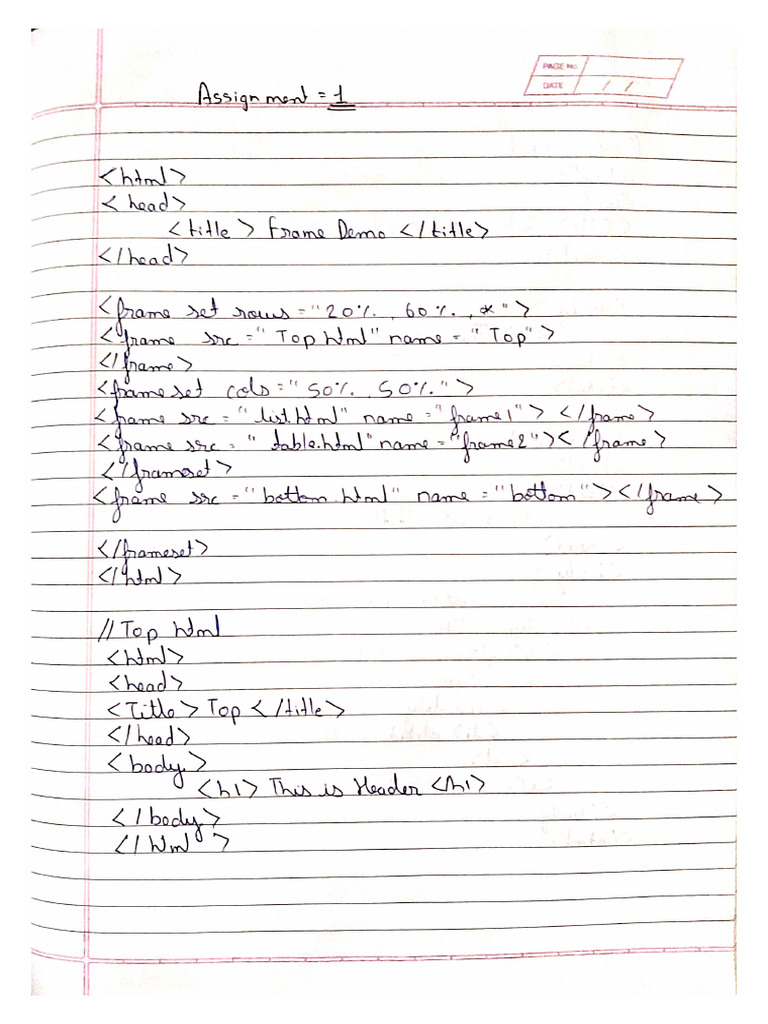 PAGE No.
DATE / /
Assignment = 1
<html>
< head>
<title > Frame Demo </title>
</head>
<frame set rows = "20%. , 60%. , *" >
<frame src = " Top html" name = " Top" >
</frame>
<frameset cols = " 50%. , 50%. " >
<frame src = " list.html" name = "frame1" > </frame>
<frame src = " table.html" name = "frame2"></frame>
</frameset>
<frame src = "bottom html" name = "bottom" ></frame>
</frameset>
</html>
// Top html
<html>
<head>
<Title> Top < /title>
</head>
<body>
<h1> This is Header </h1>
</body>
</html >